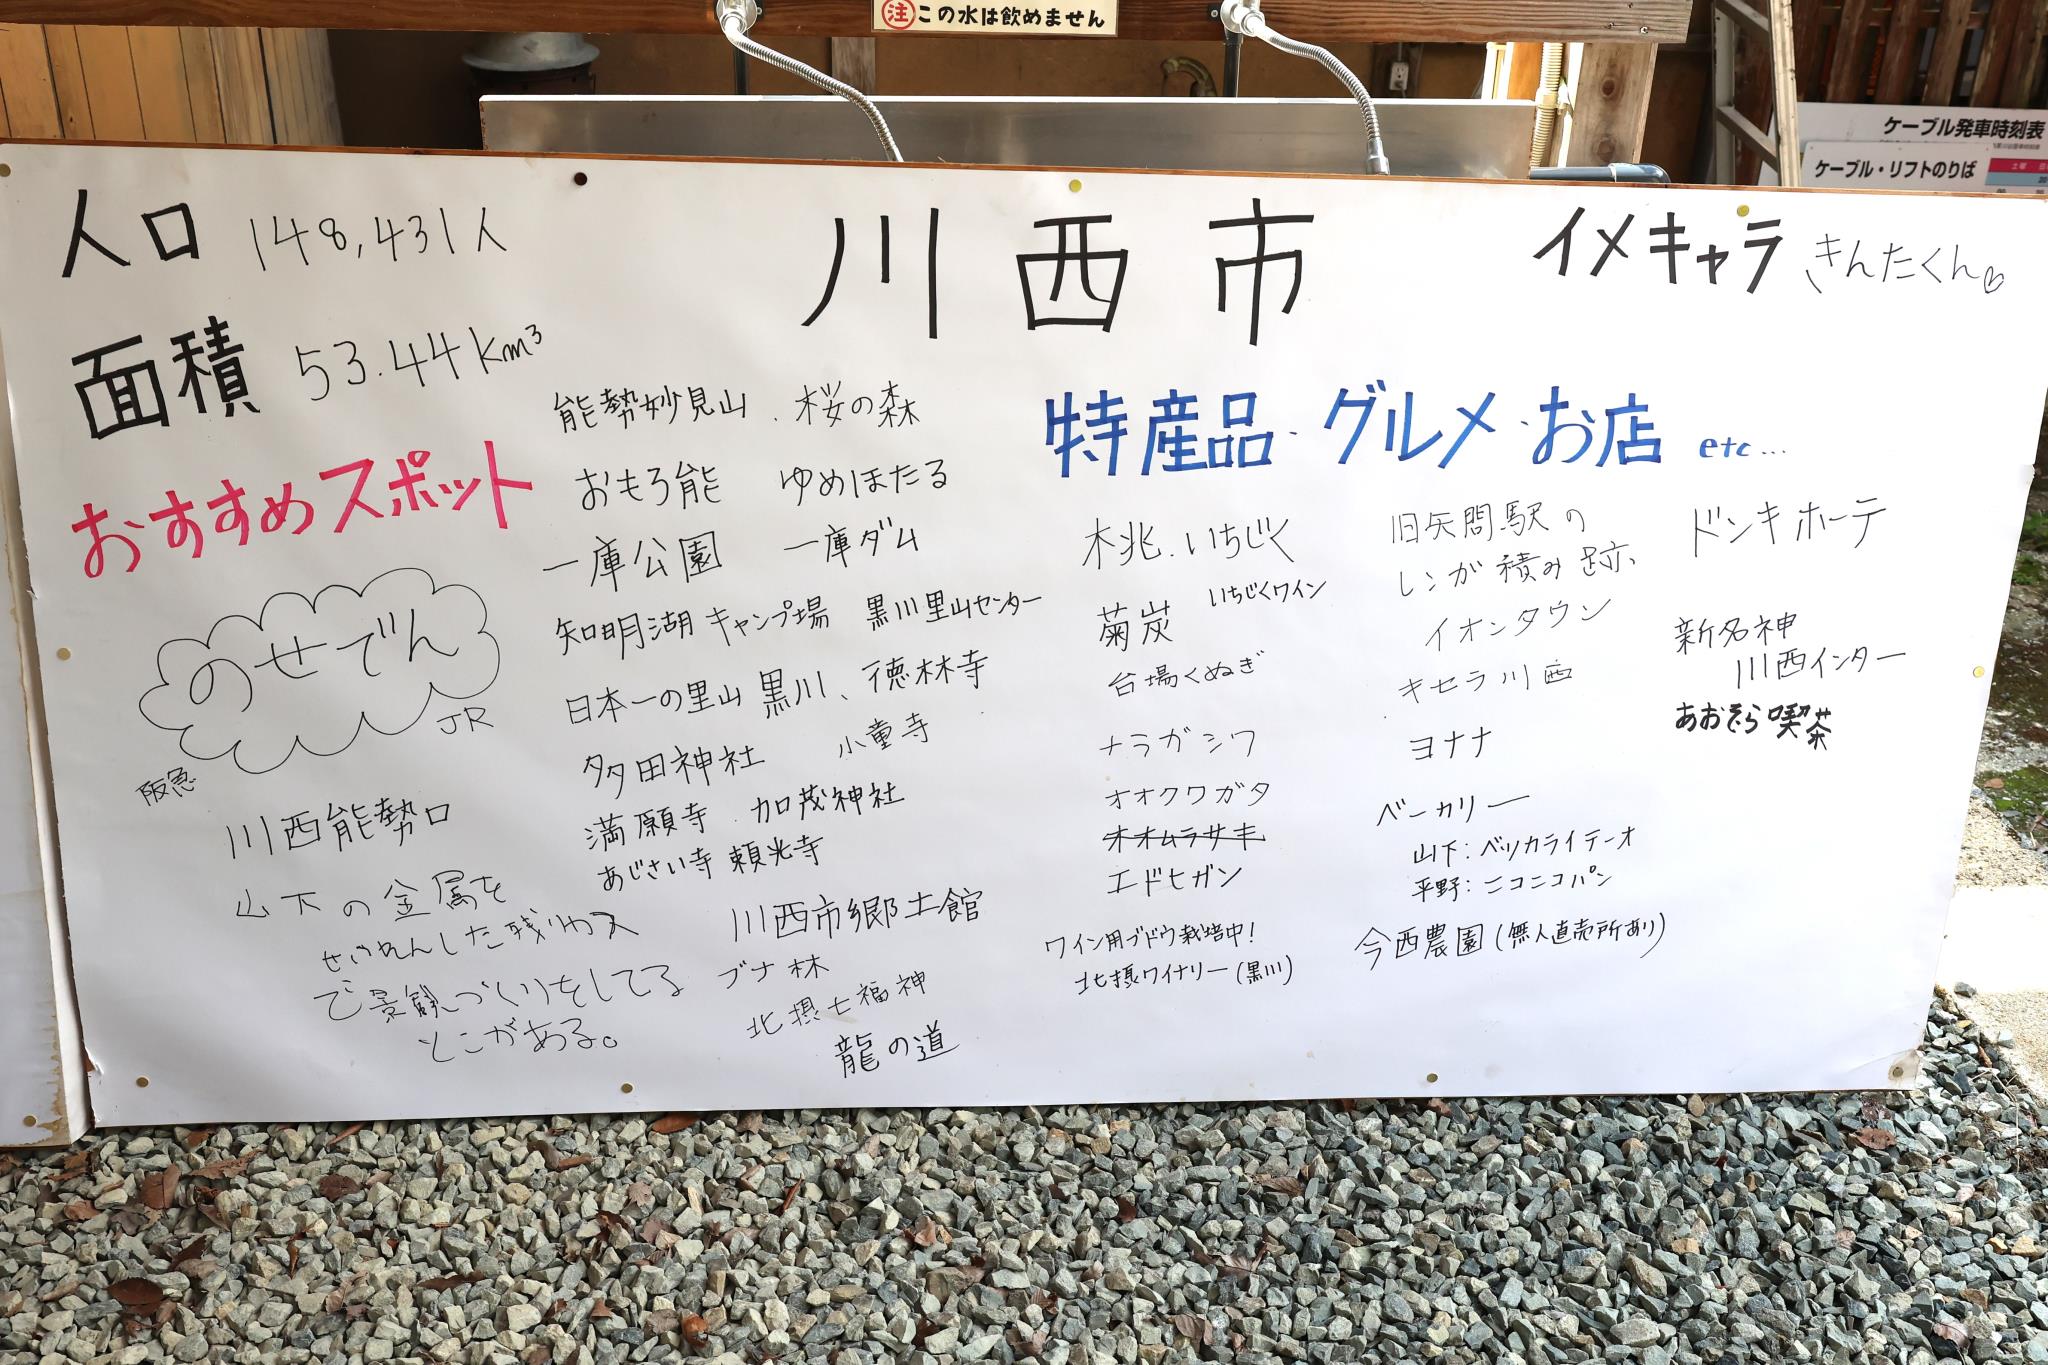 ㊟この水は飲めません
ケーブル発車時刻表
ケーブル・リフトのりば
土曜
川西市
人口 148,431人
面積 53.44km³
イメキャラ きんたくん♡
おすすめスポット
のせでん
JR
阪急
川西能勢口
山下の金属を
せいれんした残りカス
で景観づくりをしてる
とこがある。
能勢妙見山．桜の森
おもろ能 ゆめほたる
一庫公園 一庫ダム
知明湖キャンプ場 黒川里山センター
日本一の里山 黒川、徳林寺
多田神社 小童寺
満願寺．加茂神社
あじさい寺 頼光寺
川西市郷土館
ブナ林
北摂七福神
龍の道
特産品・グルメ・お店 etc...
桃．いちじく
いちじくワイン
菊炭
台場くぬぎ
ナラガシワ
オオクワガタ
オオムラサキ
エドヒガン
ワイン用ブドウ栽培中!
北摂ワイナリー(黒川)
旧矢問駅の
レンガ積み跡
イオンタウン
キセラ川西
ヨナナ
ベーカリー
山下:ベッカライテーオ
平野:ニコニコパン
今西農園(無人直売所あり)
ドンキホーテ
新名神
川西インター
あおぞら喫茶